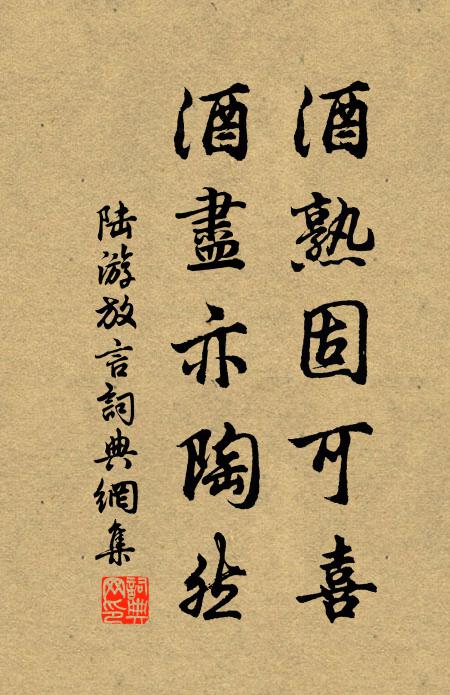 酒熟固可喜
酒盡亦陶然
陆游放言詞典網集
詞典网印